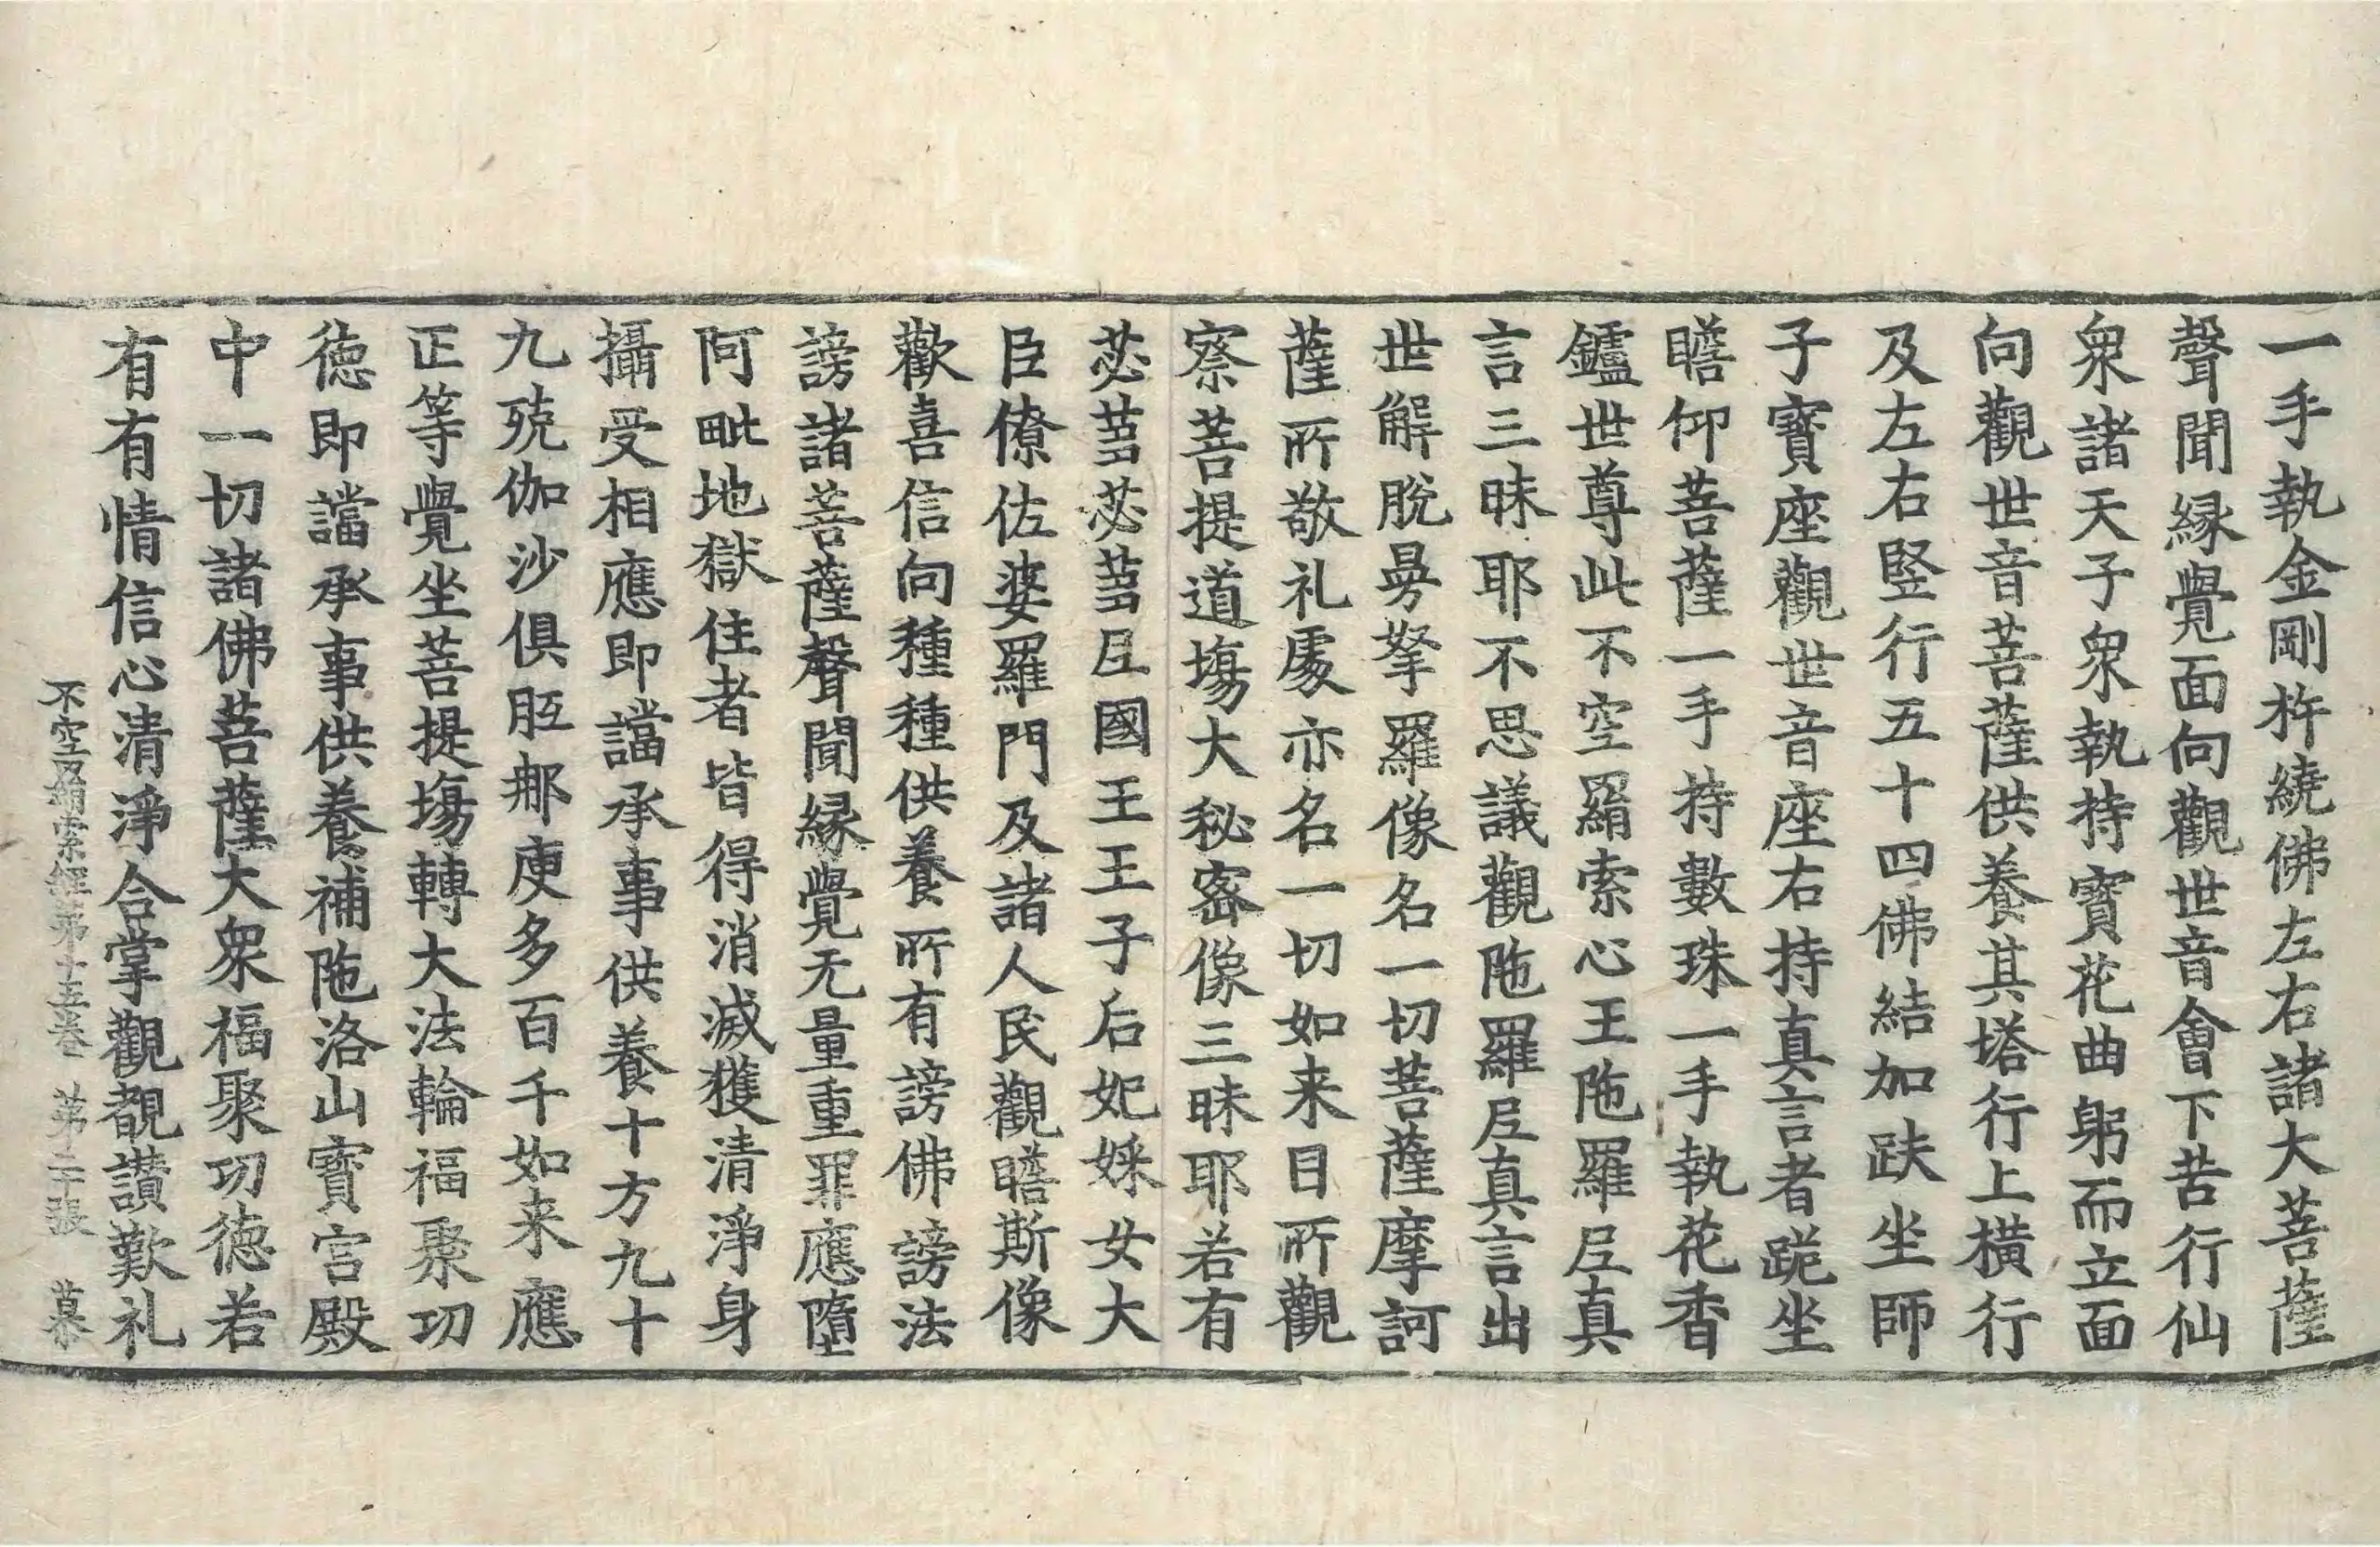 一手執金剛杵繞佛左右諸大菩薩
聲聞緣覺面向觀世音會下苦行仙
衆諸天子衆執持寶花曲躬而立面
向觀世音菩薩供養其塔行上橫行
及左右竪行五十四佛結加趺坐師
子寶座觀世音座右持真言者跪坐
瞻仰菩薩一手持數珠一手執花香
鑪世尊此不空羂索心王陁羅尼真
言三昧耶不思議觀陁羅尼真言出
世解脫曼拏羅像名一切菩薩摩訶
薩所敬礼處亦名一切如来日所觀
察菩提道塲大秘密像三昧耶若有
苾蒭苾蒭尼國王王子后妃婇女大
臣僚佐婆羅門及諸人民觀瞻斯像
歡喜信向種種供養所有謗佛謗法
謗諸菩薩聲聞緣覺无量重罪應墮
阿毗地獄住者皆得消滅獲清淨身
攝受相應即讜承事供養十方九十
九殑伽沙俱胝那庾多百千如来應
正等覺坐菩提塲轉大法輪福聚功
德即讜承事供養補陁洛山寶宫殿
中一切諸佛菩薩大衆福聚功德若
有有情信心清淨合掌觀覩讃歎礼
不空羂索經第十五卷 第二十張 㫷